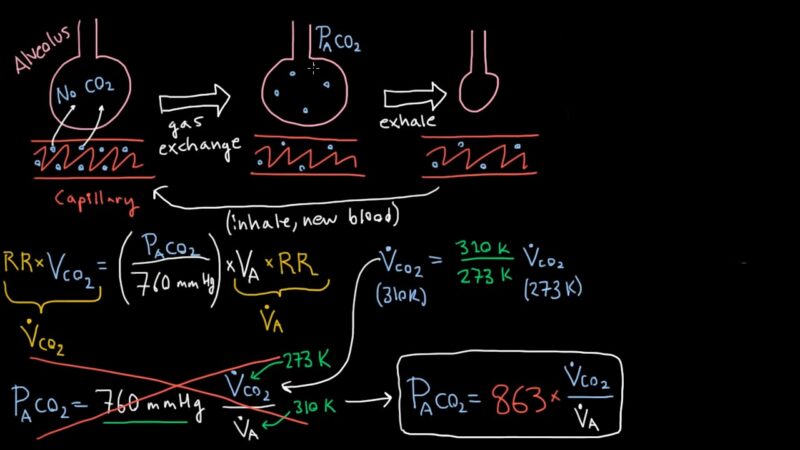 Alveolus
No CO₂
P_A CO₂
gas exchange
exhale
Capillary
(inhale, new blood)
RR × V_CO₂ = (P_A CO₂ / 760 mmHg) × V_A × RR
V̇_CO₂
V̇_A
V̇_CO₂ (310K) = 310 K / 273 K V̇_CO₂ (273 K)
P_A CO₂ = 760 mmHg V̇_CO₂ / V̇_A
273 K
310 K
P_A CO₂ = 863 × V̇_CO₂ / V̇_A